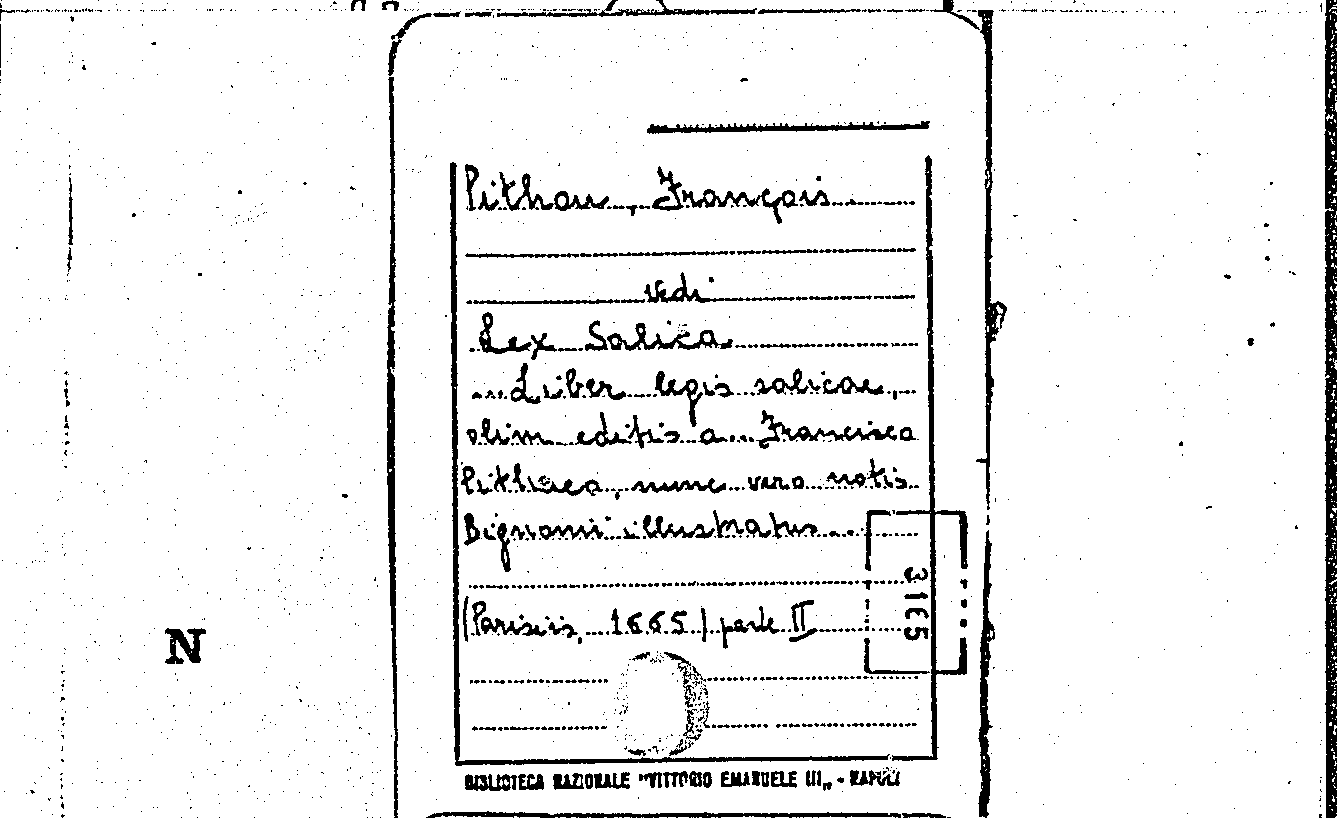 Pithou, François
vedi
Lex Salica
... Liber legis salicae,
olim editis a... Francisco
Pithaeo, nunc vero notis
Bignonii illustratus...
(Parisiis, 1665) parte II
3165
N
BIBLIOTECA NAZIONALE "VITTORIO EMANUELE III„ - NAPOLI